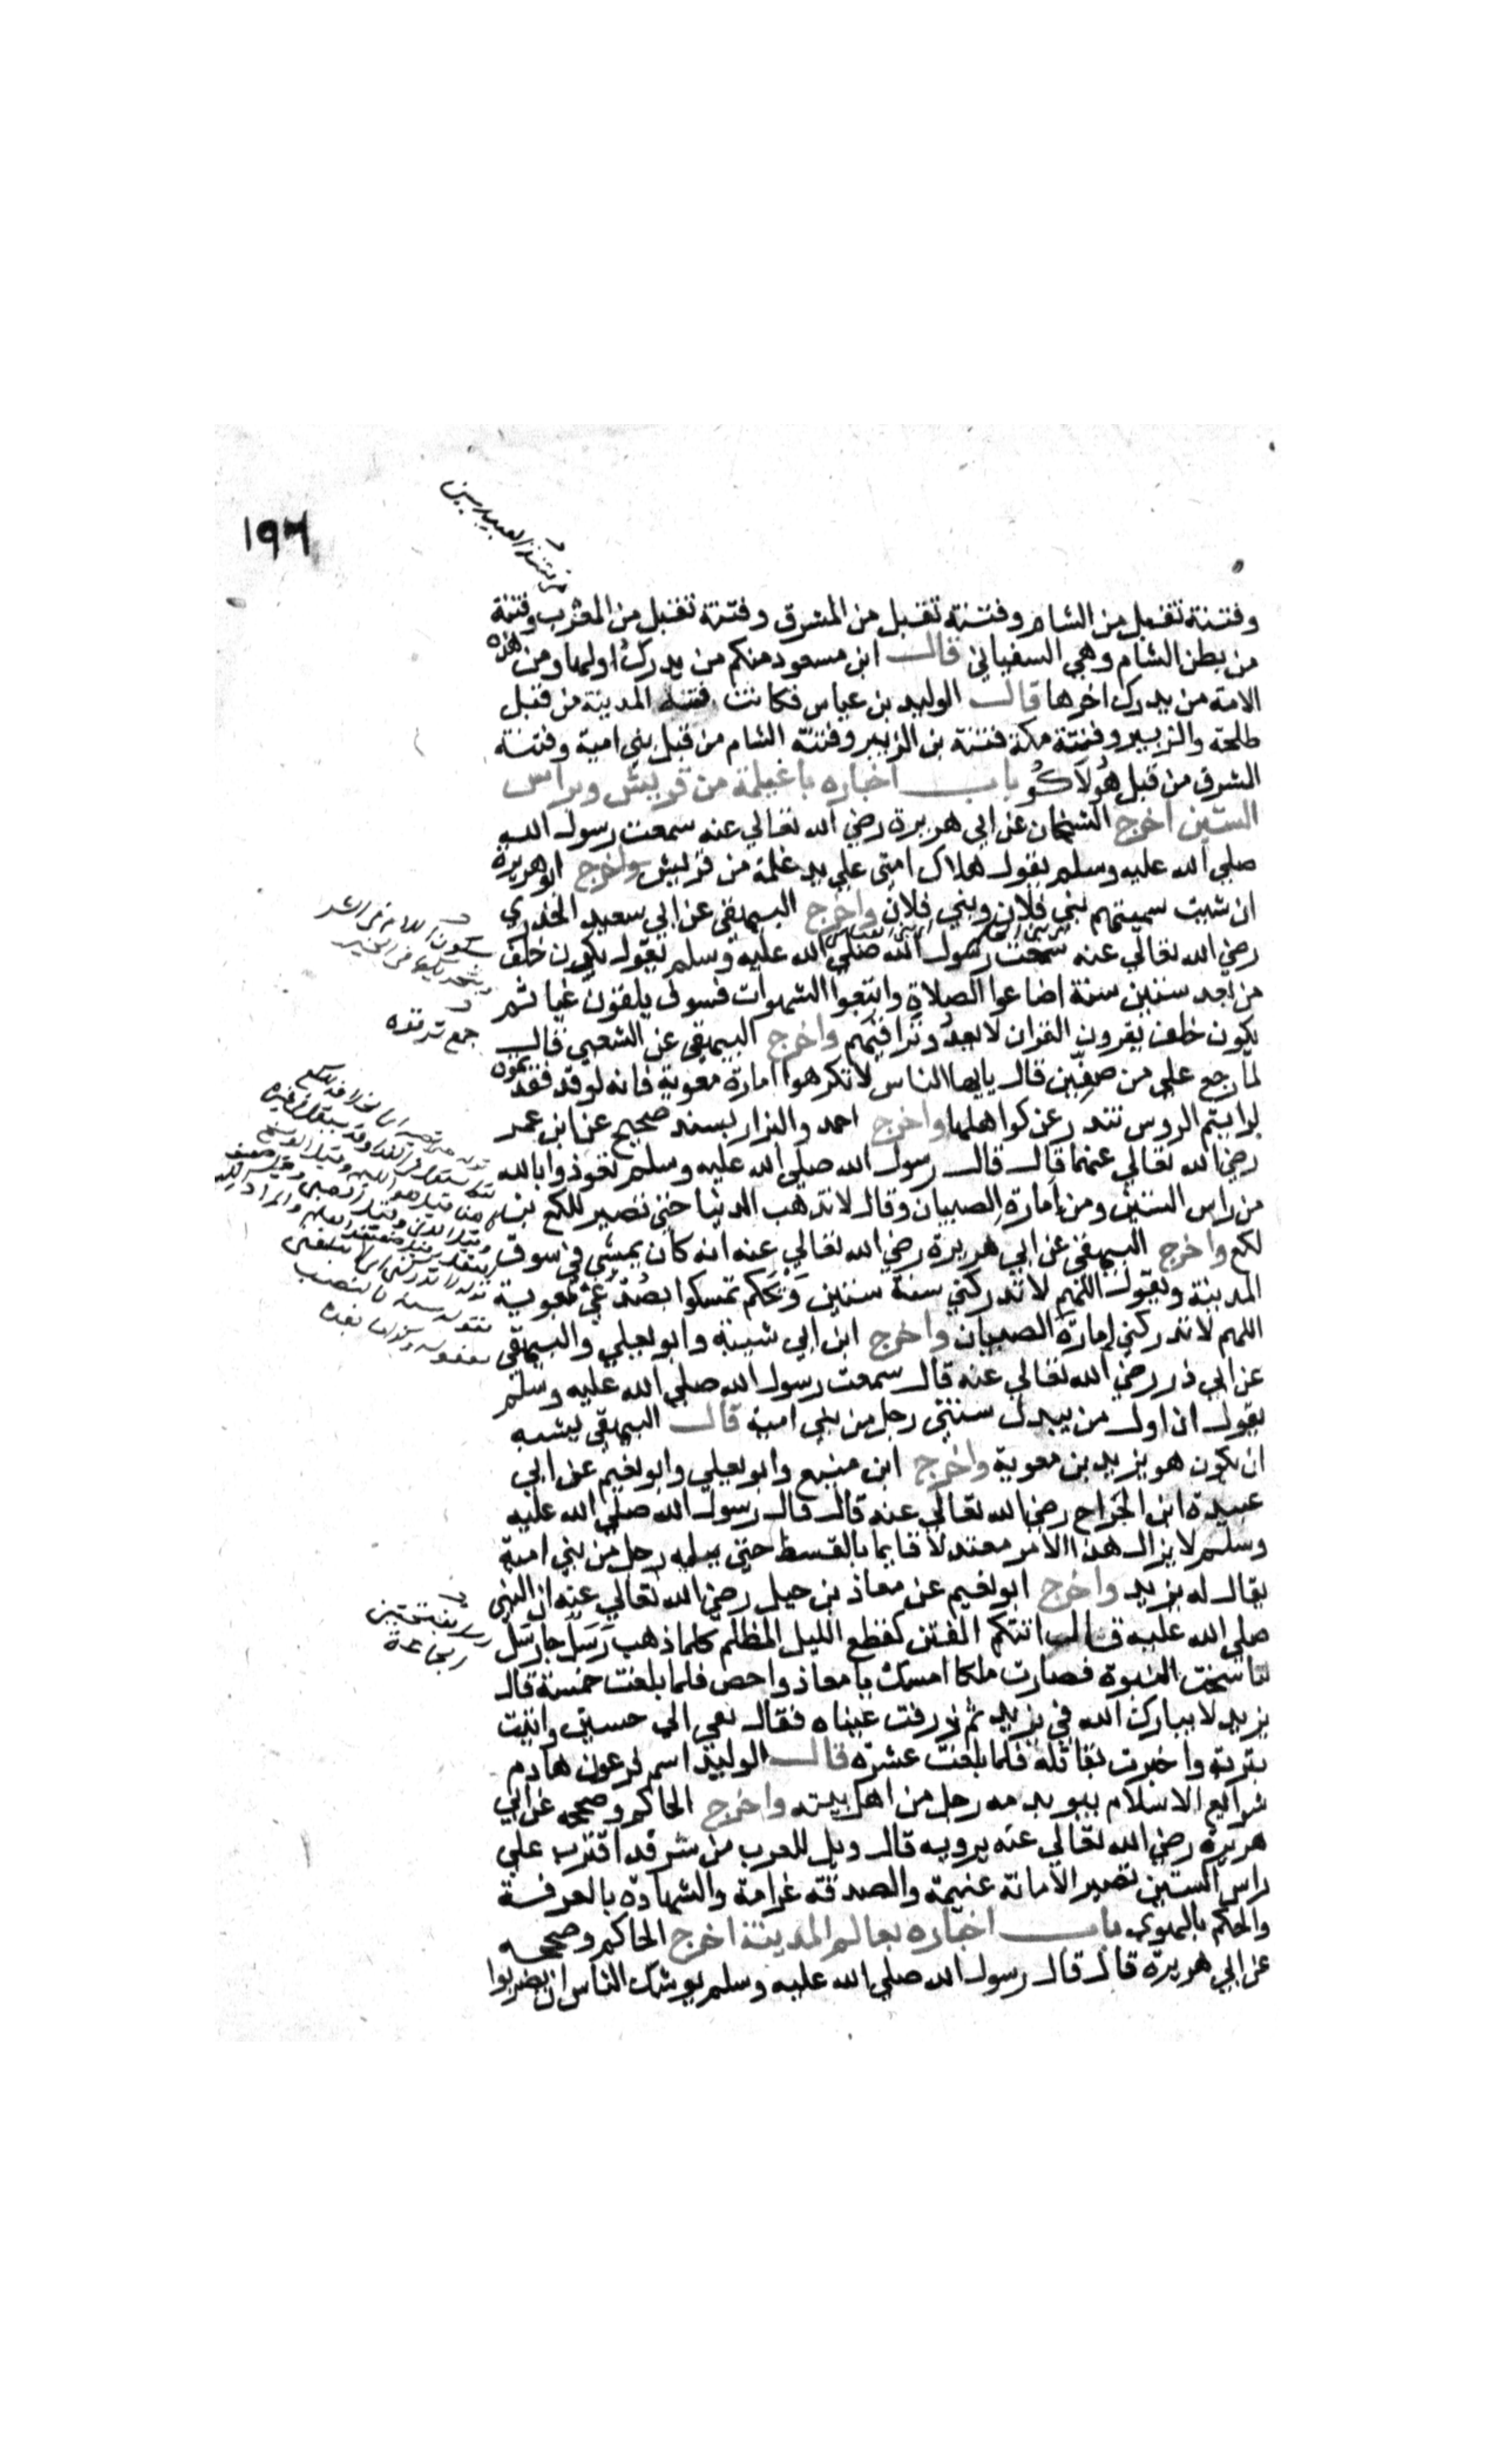 ١٩٦
وفتنة تقبل من الشام وفتنة تقبل من المشرق وفتنة تقبل من المغرب وفتنة
من بطن الشام وهي السفياني قال ابن مسعود منكم من يدرك اولها ومن هذه
الامة من يدرك اخرها قال الوليد بن عياس فكانت فتنة المدينة من قبل
طلحة والزبير وفتنة مكة فتنة بن الزبير وفتنة الشام من قبل بني امية وفتنة
المشرق من قبل هولاكو باب اخباره باغيلمة من قريش وبراس
الستين اخرج الشيخان عن ابي هريرة رضي الله تعالي عنه سمعت رسول الله
صلي الله عليه وسلم يقول هلاك امتي علي يد غلمة من قريش واخرج ابو هريرة
ان شيت سميتهم بني فلان وبني فلان واخرج البيهقي عن ابي سعيد الخدري
رضي الله تعالي عنه سمعت رسول الله صلي الله عليه وسلم يقول يكون خلف
من بعد ستين سنة اضاعوا الصلاة واتبعوا الشهوات فسوف يلقون غيا ثم
يكون خلف يقرون القران لا يعدو تراقيهم واخرج البيهقي عن الشعبي قال
لما رجع علي من صفين قال يايها الناس لا تكرهوا امارة معوية فانه لو قد فقدتموه
لرايتم الروس تندر عن كواهلها واخرج احمد والبزار بسند صحيح عن ابن عمر
رضي الله تعالي عنهما قال قال رسول الله صلي الله عليه وسلم تعوذوا بالله
من راس الستين ومن امارة الصبيان وقال لا تذهب الدنيا حتي تصير للكع بن
لكع واخرج البيهقي عن ابي هريرة رضي الله تعالي عنه انه كان يمشي في سوق
المدينة ويقول اللهم لا تدركني سنة ستين ويحكم تمسكوا بصدغي معوية
اللهم لا تدركني امارة الصبيان واخرج ابن ابي شيبة وابو يعلي والبيهقي
عن ابي ذر رضي الله تعالي عنه قال سمعت رسول الله صلي الله عليه وسلم
يقول ان اول من يبدل سنتي رجل من بني امية قال البيهقي يشبه
ان يكون هو يزيد بن معوية واخرج ابن منيع وابو يعلي وابو نعيم عن ابي
عبيدة ابن الجراح رضي الله تعالي عنه قال قال رسول الله صلي الله عليه
وسلم لا يزال هذا الامر معتدلا قايما بالقسط حتي يثلمه رجل من بني امية
يقال له يزيد واخرج ابو نعيم عن معاذ بن جبل رضي الله تعالي عنه ان النبي
صلي الله عليه قال اتتكم الفتن كقطع الليل المظلم كلما ذهب رسل جا رسل
تناسخت النبوة فصارت ملكا امسك يا معاذ واحص فلما بلغت خمسة قال
يزيد لا يبارك الله في يزيد ثم ذرفت عيناه فقال نعي الي حسين واتيت
بتربته واخبرت بقاتله فلما بلغت عشرة قال الوليد اسم فرعون هادم
شرايع الاسلام يبو بدمه رجل من اهل بيته واخرج الحاكم وصححه عن ابي
هريرة رضي الله تعالي عنه يرويه قال ويل للعرب من شر قد اقترب علي
راس الستين تصير الامانة غنيمة والصدقة غرامة والشهادة بالمعرفة
والحكم بالهوي باب اخباره بعالم المدينة اخرج الحاكم وصححه
عن ابي هريرة قال قال رسول الله صلي الله عليه وسلم يوشك الناس ان يضربوا
سكون اللام في الشر
وتحريكها في الخير
جمع ترقوة
رسل بفتحتين
الجماعة